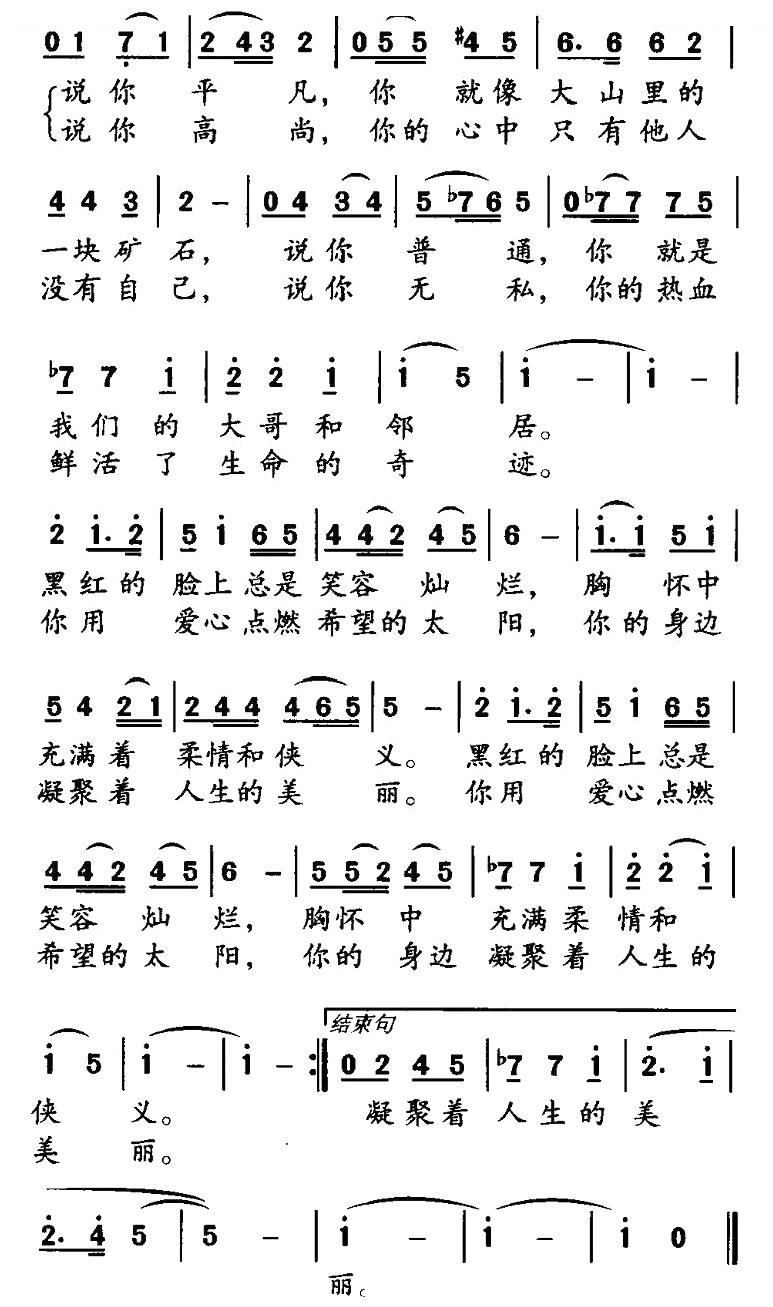 0 1 7 1 | 2 4 3 2 | 0 5 5 #4 5 | 6. 6 6 2 |
说你平凡，你就像大山里的
说你高尚，你的心中只有他人
4 4 3 | 2 - | 0 4 3 4 | 5 b7 6 5 | 0 b7 7 7 5 |
一块矿石，说你普通，你就是
没有自己，说你无私，你的热血
b7 7 1 | 2 2 1 | 1 5 | 1 - | 1 - |
我们的大哥和邻居。
鲜活了生命的奇迹。
2 1. 2 | 5 1 6 5 | 4 4 2 4 5 | 6 - | 1. 1 5 1 |
黑红的脸上总是笑容灿烂，胸怀中
你用爱心点燃希望的太阳，你的身边
5 4 2 1 | 2 4 4 4 6 5 | 5 - | 2 1. 2 | 5 1 6 5 |
充满着柔情和侠义。黑红的脸上总是
凝聚着人生的美丽。你用爱心点燃
4 4 2 4 5 | 6 - | 5 5 2 4 5 | b7 7 1 | 2 2 1 |
笑容灿烂，胸怀中充满柔情和
希望的太阳，你的身边凝聚着人生的
结束句
1 5 | 1 - | 1 - :| 0 2 4 5 | b7 7 1 | 2. 1 |
侠义。凝聚着人生的美
美丽。
2. 4 5 | 5 - | 1 - | 1 - | 1 0 ||
丽。